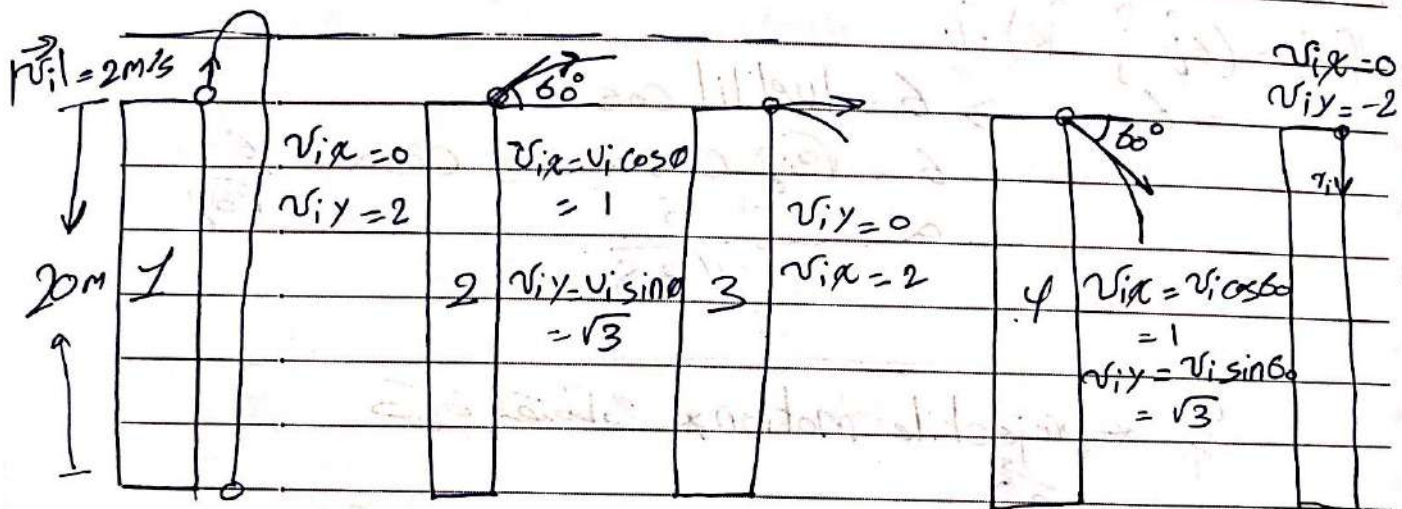 |v⃗i| = 2m/s
20m
1
vix = 0
viy = 2
60°
vix = vi cosθ
= 1
2
viy = vi sinθ
= √3
3
viy = 0
vix = 2
60°
4
vix = vi cos60
= 1
viy = vi sin60
= √3
vix = 0
viy = -2